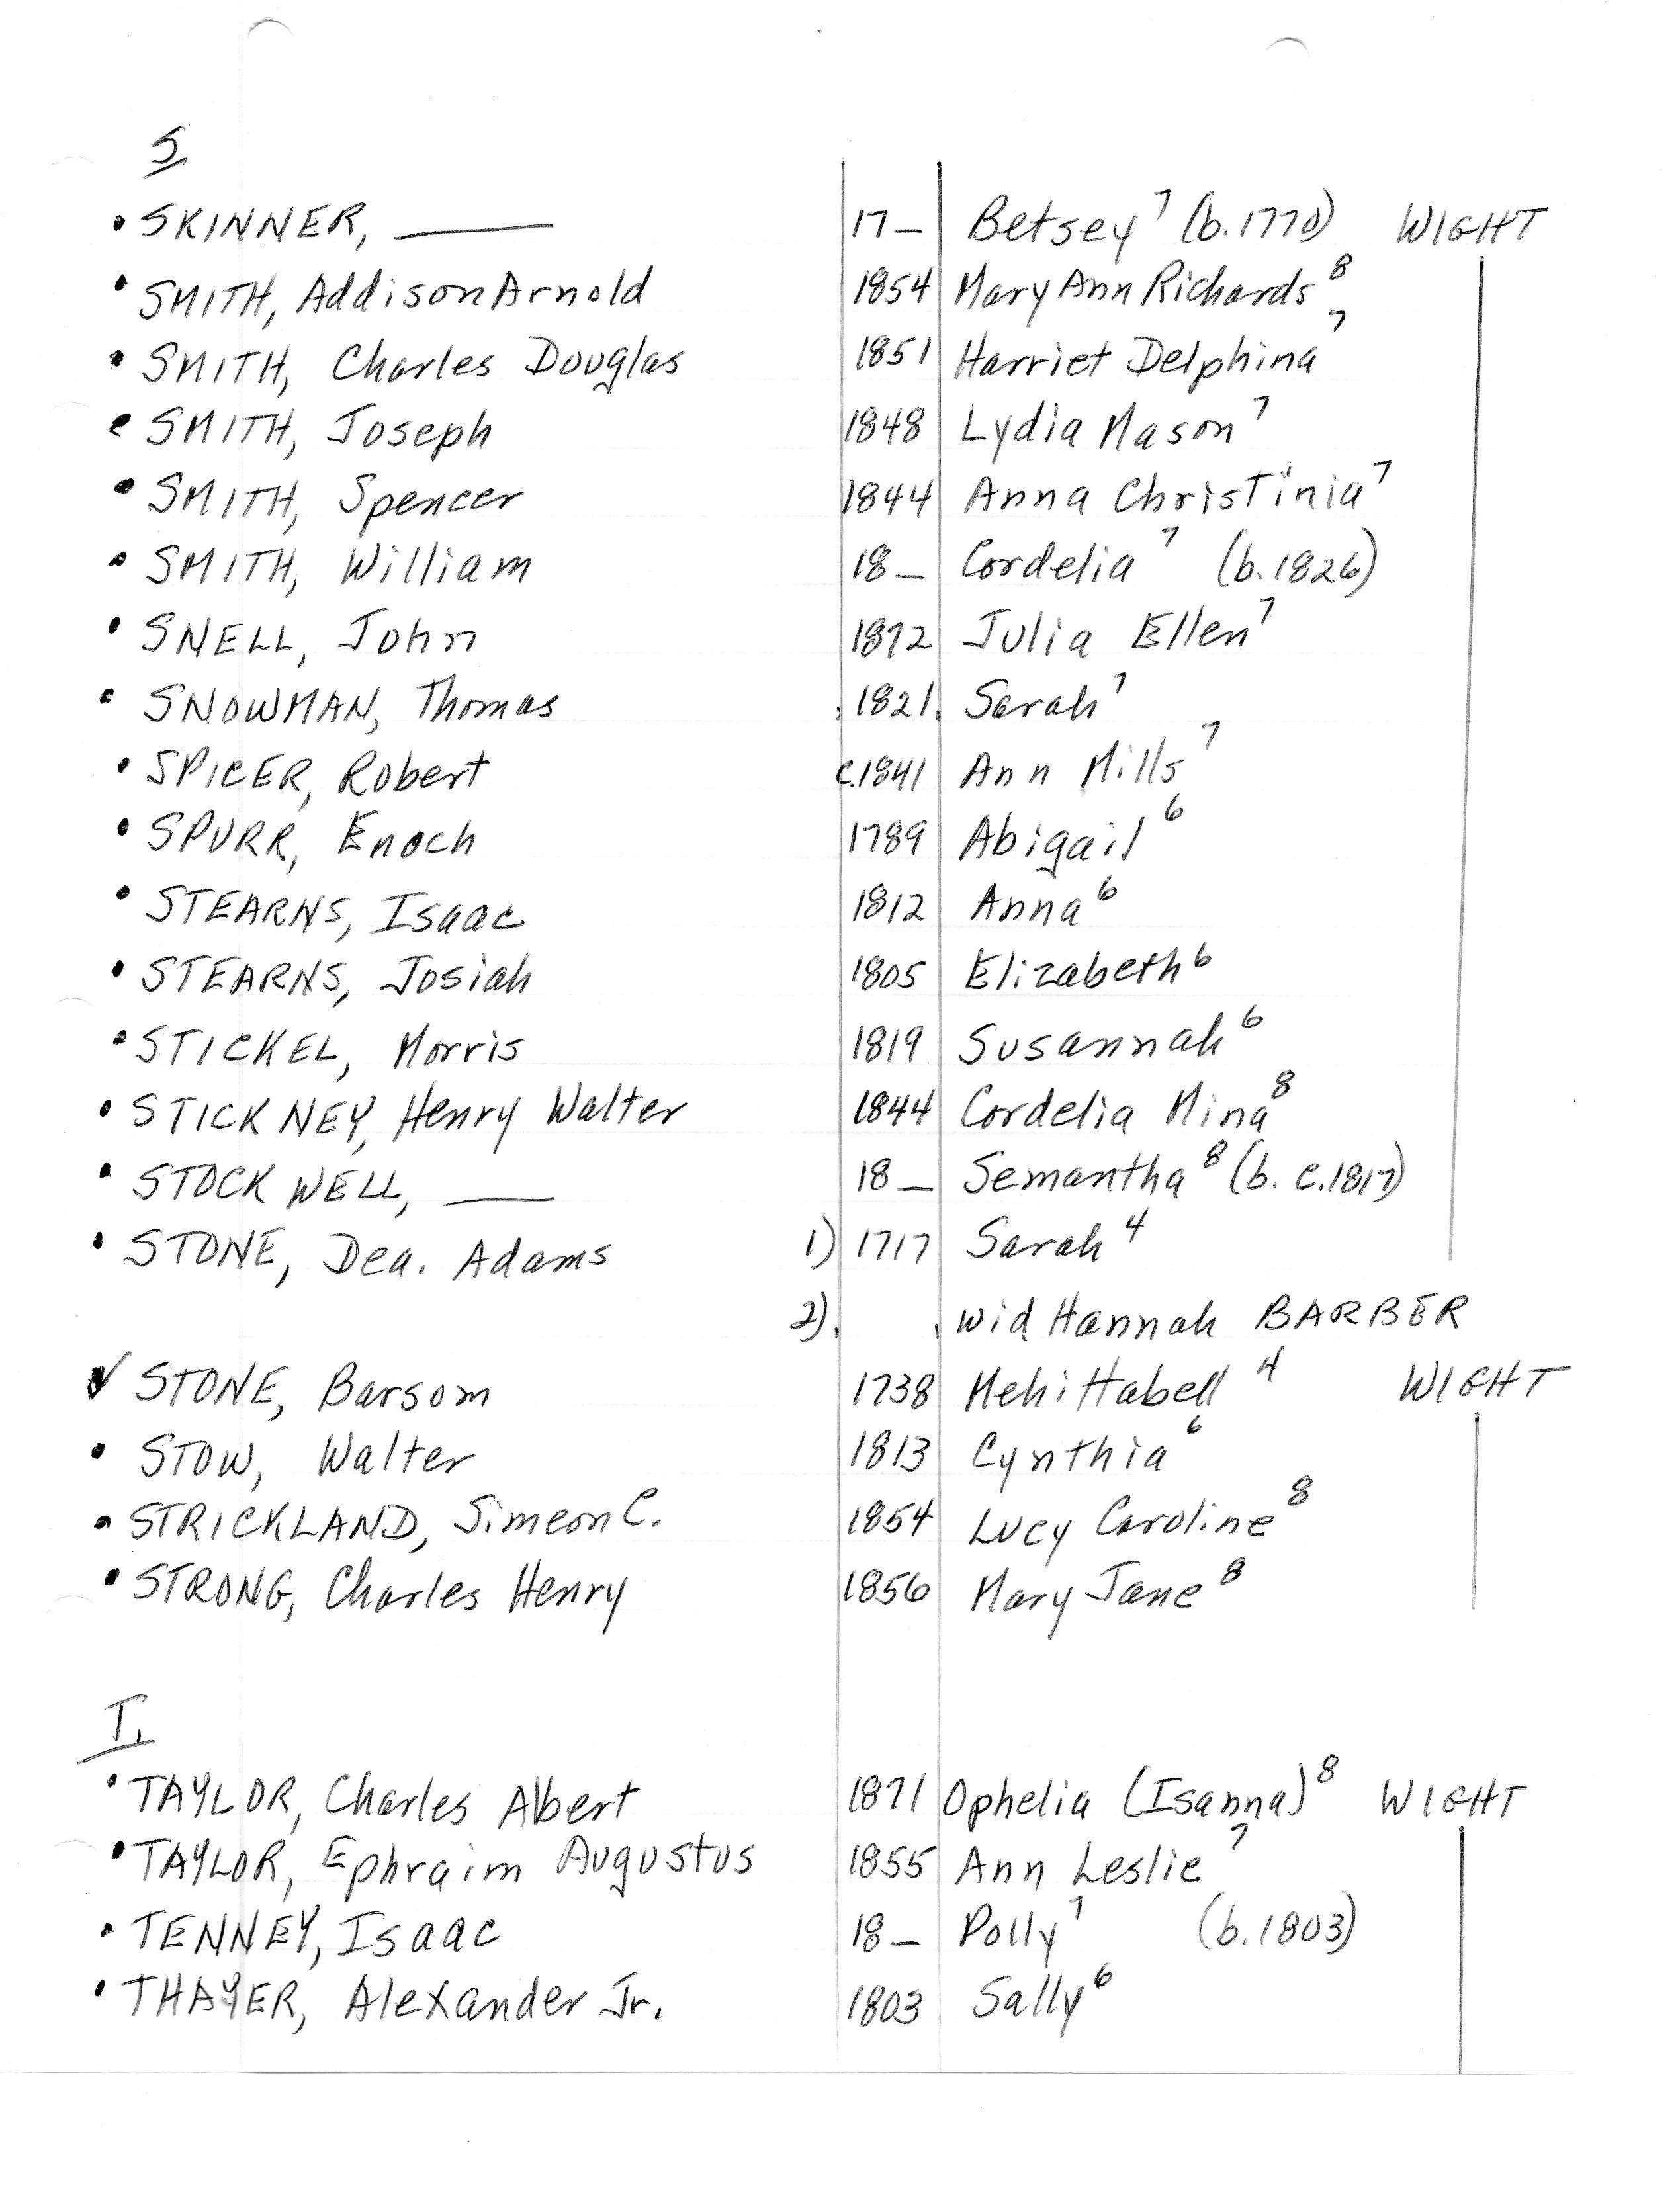 S
• SKINNER, ——— 17– Betsey⁷ (b.1770) WIGHT
• SMITH, Addison Arnold 1854 Mary Ann Richards⁸
• SMITH, Charles Douglas 1851 Harriet Delphina⁷
• SMITH, Joseph 1848 Lydia Mason⁷
• SMITH, Spencer 1844 Anna Christinia⁷
• SMITH, William 18– Cordelia⁷ (b.1826)
• SNELL, John 1872 Julia Ellen⁷
• SNOWMAN, Thomas 1821 Sarah⁷
• SPICER, Robert c.1841 Ann Mills⁷
• SPURR, Enoch 1789 Abigail⁶
• STEARNS, Isaac 1812 Anna⁶
• STEARNS, Josiah 1805 Elizabeth⁶
• STICKEL, Morris 1819 Susannah⁶
• STICKNEY, Henry Walter 1844 Cordelia Mina⁸
• STOCKWELL, ——— 18– Semantha⁸ (b. c.1817)
• STONE, Dea. Adams 1) 1717 Sarah⁴
2) wid Hannah BARBER
✓ STONE, Barsom 1738 Mehittabell⁴ WIGHT
• STOW, Walter 1813 Cynthia⁶
• STRICKLAND, Simeon C. 1854 Lucy Caroline⁸
• STRONG, Charles Henry 1856 Mary Jane⁸
T.
• TAYLOR, Charles Albert 1871 Ophelia (Isanna)⁸ WIGHT
• TAYLOR, Ephraim Augustus 1855 Ann Leslie⁷
• TENNEY, Isaac 18– Polly⁷ (b.1803)
• THAYER, Alexander Jr. 1803 Sally⁶